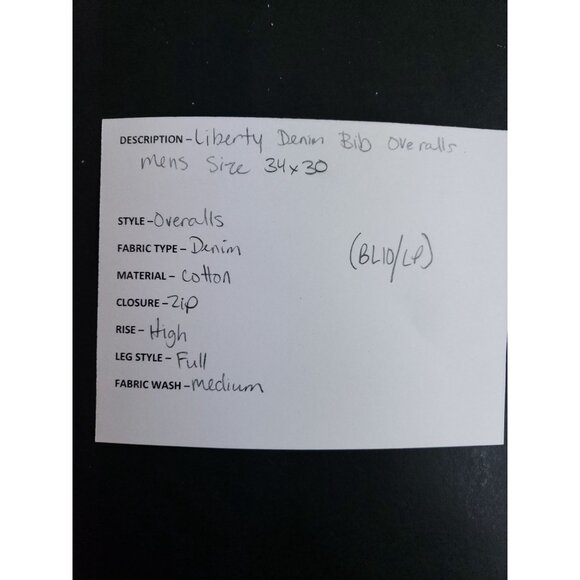 DESCRIPTION - Liberty Denim Bib Overalls.
mens Size 34x30
STYLE - Overalls
FABRIC TYPE - Denim
(BL10/LP)
MATERIAL - Cotton
CLOSURE - Zip
RISE - High
LEG STYLE - Full
FABRIC WASH - medium